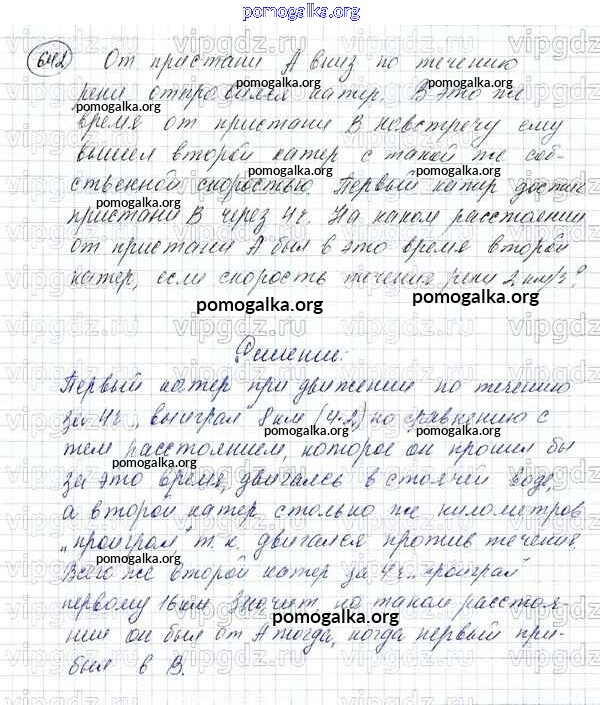 pomogalka.org
642 От пристани А вниз по течению
реки отправился катер. В это же
pomogalka.org pomogalka.org
время от пристани В навстречу ему
вышел второй катер с такой же соб-
ственной скоростью. Первый катер достиг
пристани В через 4 ч. На каком расстоянии
от пристани А был в это время второй
катер, если скорость течения реки 2 км/ч?
pomogalka.org pomogalka.org
Решение:
Первый катер при движении по течению
за 4ч „выиграл 8 км (4·2) по сравнению с
pomogalka.org pomogalka.org
тем расстоянием, которое он прошёл бы
за это время, двигаясь в стоячей воде,
а второй катер столько же километров
„проиграл" т.к. двигался против течения
pomogalka.org pomogalka.org
Всего же второй катер за 4ч „проиграл"
первому 16 км. Значит, на таком расстоя-
нии он был от А тогда, когда первый при-
pomogalka.org pomogalka.org
был в В.